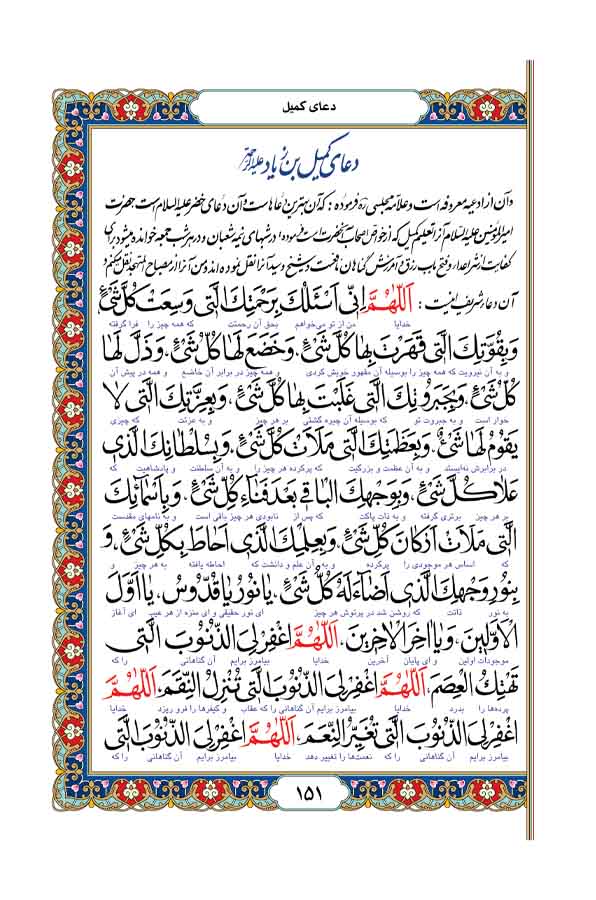 دعای کمیل
دعای کمیل بن زیاد علیه الرحمه
و آن از ادعیه معروفه است و علامه مجلسی ره فرموده: که آن بهترین دعاها است و آن دعای خضر علیه السلام است حضرت
امیرالمؤمنین علیه السلام آنرا تعلیم کمیل که از خواص اصحاب آنحضرت است فرموده در شبهای نیمه شعبان و در هر شب جمعه خوانده میشود برای
کفایت از شر اعداء و فتح باب رزق و آمرزش گناهان نافعست و شیخ و سید آنرا نقل نموده اند و من آنرا از مصباح المتهجد نقل میکنم و
آن دعا شریف اینست: اَللّٰهُمَّ اِنّی اَسْئَلُكَ بِرَحْمَتِكَ الَّتی وَسِعَتْ كُلَّ شَیْءٍ
خدایا من از تو می‌خواهم بحق آن رحمتت که همه چیز را فرا گرفته
وَ بِقُوَّتِكَ الَّتی قَهَرْتَ بِها كُلَّ شَیْءٍ، وَ خَضَعَ لَها كُلُّ شَیْءٍ، وَ ذَلَّ لَها
و به آن نیرویت که همه چیز را بوسیله آن مقهور خویش کردی و همه چیز در برابر آن خاضع و همه در پیش آن
كُلُّ شَیْءٍ، وَ بِجَبَرُوتِكَ الَّتی غَلَبْتَ بِها كُلَّ شَیْءٍ، وَ بِعِزَّتِكَ الَّتی لا
خوار است و به جبروت تو که بوسیله آن چیره گشتی بر هر چیز و به عزتت که چیزی
یَقُومُ لَها شَیْءٌ، وَ بِعَظَمَتِكَ الَّتی مَلَأَتْ كُلَّ شَیْءٍ، وَ بِسُلْطانِكَ الَّذی
در برابرش نه‌ایستد و به آن عظمت و بزرگیت که پرکرده هر چیز را و به آن سلطنت و پادشاهیت که
عَلا كُلَّ شَیْءٍ، وَ بِوَجْهِكَ الْباقی بَعْدَ فَناءِ كُلِّ شَیْءٍ، وَ بِاَسْمائِكَ
بر هر چیز برتری گرفته و به ذات پاکت که پس از نابودی هر چیز باقی است و به نامهای مقدست
الَّتی مَلَأَتْ اَرْكانَ كُلِّ شَیْءٍ، وَ بِعِلْمِكَ الَّذی اَحاطَ بِكُلِّ شَیْءٍ، وَ
که اساس هر موجودی را پرکرده و به آن علم و دانشت که احاطه یافته به هر چیز و
بِنُورِ وَجْهِكَ الَّذی اَضاءَ لَهُ كُلُّ شَیْءٍ، یا نُورُ یا قُدُّوسُ، یا اَوَّلَ
به نور ذاتت که روشن شد در پرتوش هر چیز ای نور حقیقی و ای منزه از هر عیب ای آغاز
الْاَوَّلینَ، وَ یا اخِرَ الْاخِرینَ، اَللّٰهُمَّ اغْفِرْ لِیَ الذُّنُوبَ الَّتی
موجودات اولین و ای پایان آخرین خدایا بیامرز برایم آن گناهانی را که
تَهْتِكُ الْعِصَمَ، اَللّٰهُمَّ اغْفِرْ لِیَ الذُّنُوبَ الَّتی تُنْزِلُ النِّقَمَ، اَللّٰهُمَّ
پرده‌ها را بدرد خدایا بیامرز برایم آن گناهانی را که عقاب و کیفرها را فرو ریزد خدایا
اغْفِرْ لِیَ الذُّنُوبَ الَّتی تُغَیِّرُ النِّعَمَ، اَللّٰهُمَّ اغْفِرْ لِیَ الذُّنُوبَ الَّتی
بیامرز برایم آن گناهانی را که نعمت‌ها را تغییر دهد خدایا بیامرز برایم آن گناهانی را که
۱۵۱